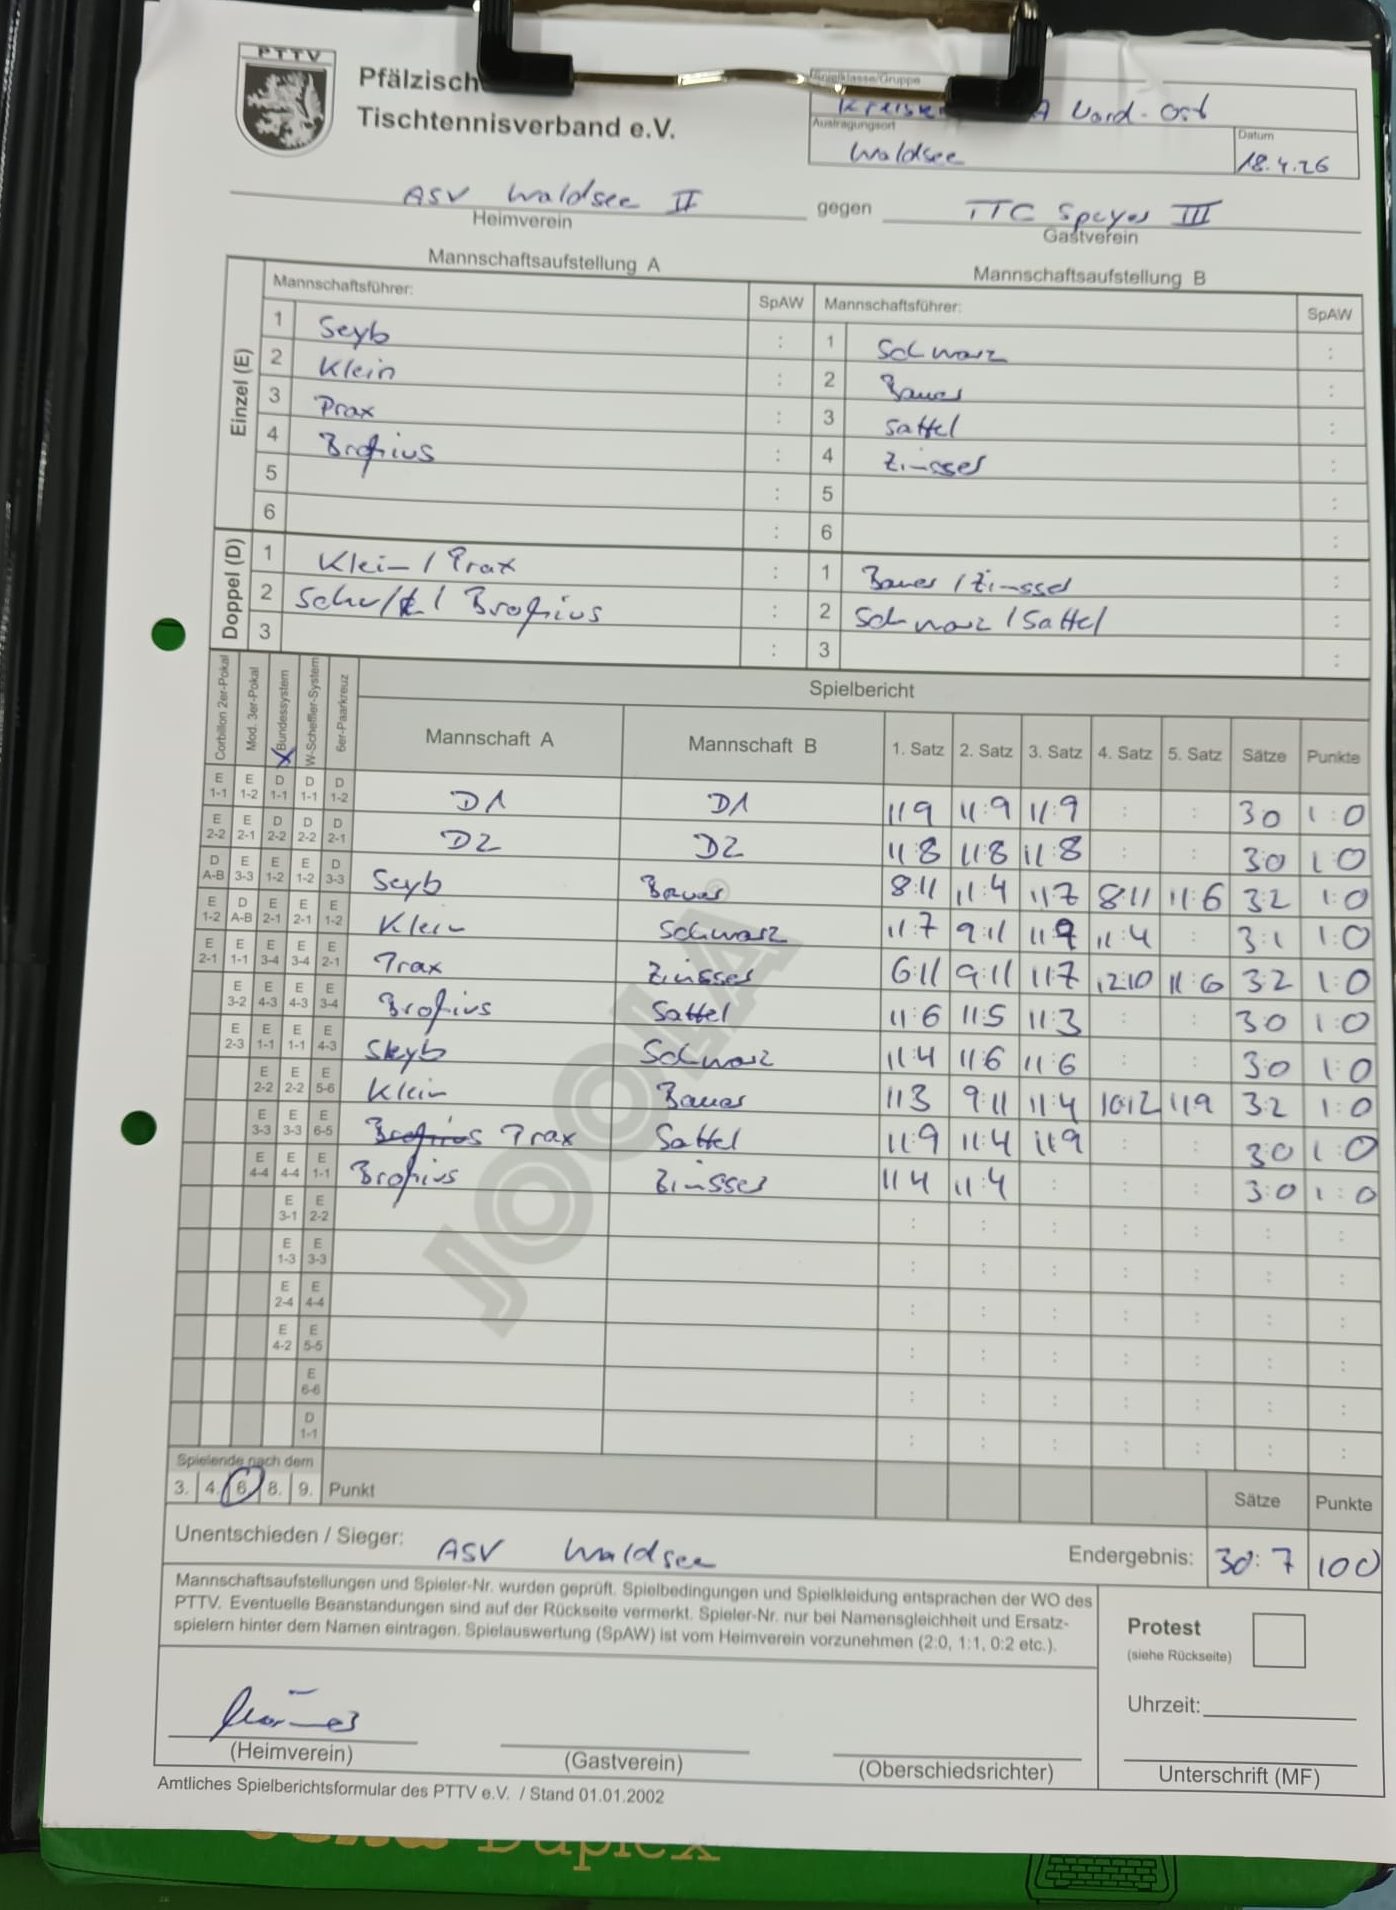 PTTV
Pfälzisch
Tischtennisverband e.V.
Spielklasse/Gruppe
A Nord-Ost
Austragungsort
Waldsee
Datum
18.4.26
ASV Waldsee II gegen TTC Speyer III
Heimverein Gastverein
Mannschaftsaufstellung A Mannschaftsaufstellung B
Einzel (E)
Mannschaftsführer: SpAW Mannschaftsführer: SpAW
1 Seyb : 1 Schwarz :
2 Klein : 2 Bauer :
3 Prax : 3 Sattel :
4 Brofius : 4 Zinsser :
5 : 5 :
6 : 6 :
Doppel (D)
1 Klein / Prax : 1 Bauer / Zinsser :
2 / Brofius : 2 Schwarz / Sattel :
3 : 3 :
Spielbericht
Corbillon 2er-Pokal Mod. 3er-Pokal X Bundessystem W-Scheffler-System 6er-Paarkreuz Mannschaft A Mannschaft B 1. Satz 2. Satz 3. Satz 4. Satz 5. Satz Sätze Punkte
E 1-1 E 1-2 D 1-1 D 1-1 D 1-2 D1 D1 11:9 11:9 11:9 : : 3:0 1:0
E 2-2 E 2-1 D 2-2 D 2-2 D 2-1 D2 D2 11:8 11:8 11:8 : : 3:0 1:0
D A-B E 3-3 E 1-2 E 1-2 D 3-3 Seyb Bauer 8:11 11:4 11:7 8:11 11:6 3:2 1:0
E 1-2 D A-B E 2-1 E 2-1 E 1-2 Klein Schwarz 11:7 9:11 11:9 11:4 : 3:1 1:0
E 2-1 E 1-1 E 3-4 E 3-4 E 2-1 Prax Zinsser 6:11 9:11 11:7 12:10 11:6 3:2 1:0
E 3-2 E 4-3 E 4-3 E 3-4 Brofius Sattel 11:6 11:5 11:3 : : 3:0 1:0
E 2-3 E 1-1 E 1-1 E 4-3 Seyb Schwarz 11:4 11:6 11:6 : : 3:0 1:0
E 2-2 E 2-2 E 5-6 Klein Bauer 11:3 9:11 11:4 10:12 11:9 3:2 1:0
E 3-3 E 3-3 E 6-5 Brofius Prax Sattel 11:9 11:4 11:9 : : 3:0 1:0
E 4-4 E 4-4 E 1-1 Brofius Zinsser 11:4 11:4 : : : 3:0 1:0
E 3-1 E 2-2 : : : : : : :
E 1-3 E 3-3 : : : : : : :
E 2-4 E 4-4 : : : : : : :
E 4-2 E 5-5 : : : : : : :
E 6-6 : : : : : : :
D 1-1 : : : : : : :
JOOLA
Spielende nach dem
3. 4. 6. 8. 9. Punkt Sätze Punkte
Unentschieden / Sieger: ASV Waldsee Endergebnis: 30:7 10:0
Mannschaftsaufstellungen und Spieler-Nr. wurden geprüft. Spielbedingungen und Spielkleidung entsprachen der WO des
PTTV. Eventuelle Beanstandungen sind auf der Rückseite vermerkt. Spieler-Nr. nur bei Namensgleichheit und Ersatz-
spielern hinter dem Namen eintragen. Spielauswertung (SpAW) ist vom Heimverein vorzunehmen (2:0, 1:1, 0:2 etc.).
Protest
(siehe Rückseite)
Uhrzeit:
(Heimverein) (Gastverein) (Oberschiedsrichter) Unterschrift (MF)
Amtliches Spielberichtsformular des PTTV e.V. / Stand 01.01.2002
Duplex